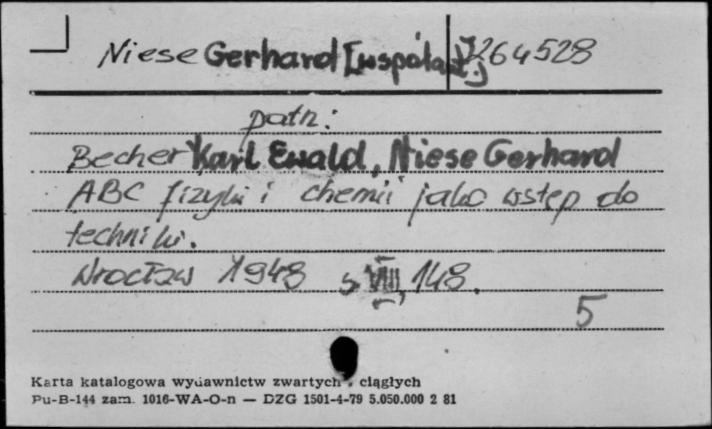 Niese Gerhard [współaut.] I 264528
patrz:
Becher Karl Ewald, Niese Gerhard
ABC fizyki i chemii jako wstęp do
techniki.
Wrocław 1948 s. [VIII], 148.
5
Karta katalogowa wydawnictw zwartych i ciągłych
Pu-B-144 zam. 1016-WA-O-n — DZG 1501-4-79 5.050.000 2 81